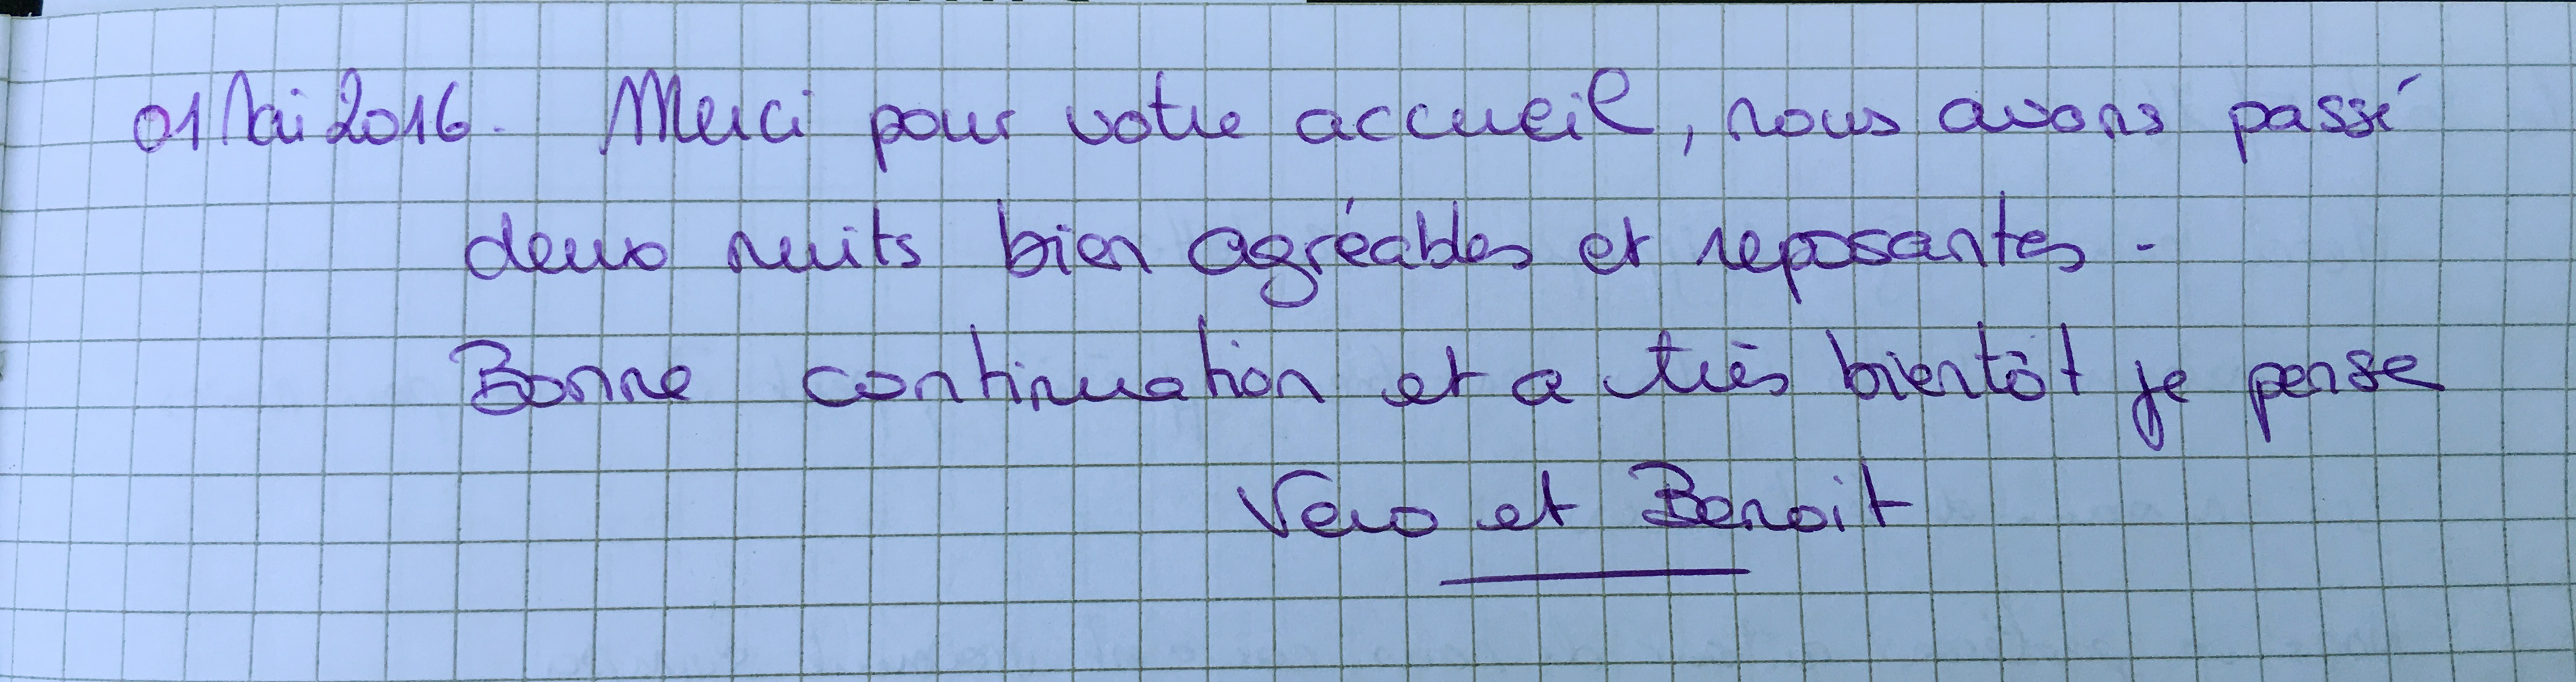 01 Mai 2016. Merci pour votre accueil, nous avons passé
deux nuits bien agréables et reposantes -
Bonne continuation et a très bientôt je pense
Vero et Benoit